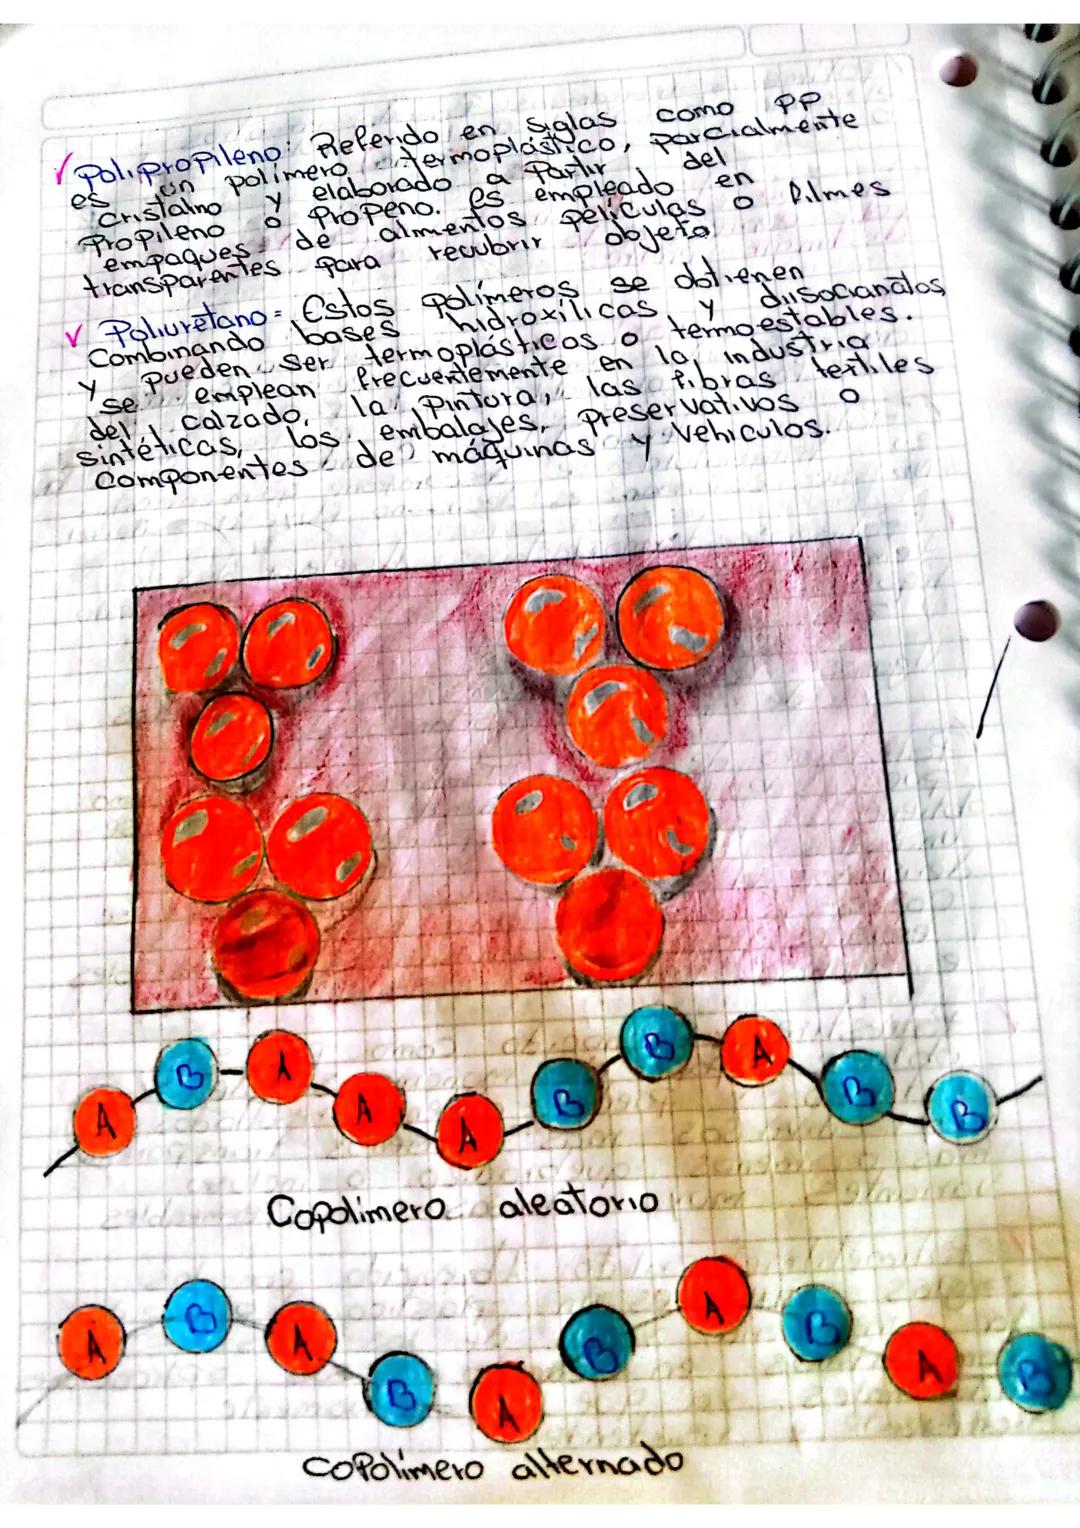 ✓ Polipropileno: Referido en siglas como PP
es un polímero termoplástico, parcialmente
cristalino y elaborado a partir del
propileno o propeno. Es empleado en
empaques de alimentos películas o filmes
transparentes para recubrir objeto
✓ Poliuretano = Estos polímeros se obtienen
combinando bases hidroxílicas y diisocianatos,
y pueden ser termoplásticos o termoestables.
se emplean frecuentemente en la industria
del calzado, la pintura, las fibras textiles
sintéticas, los embalajes, preservativos o
componentes de máquinas y vehiculos.
A B A A A B B A B B
Copolimero aleatorio
A B A B A B A B A B
Copolímero alternado